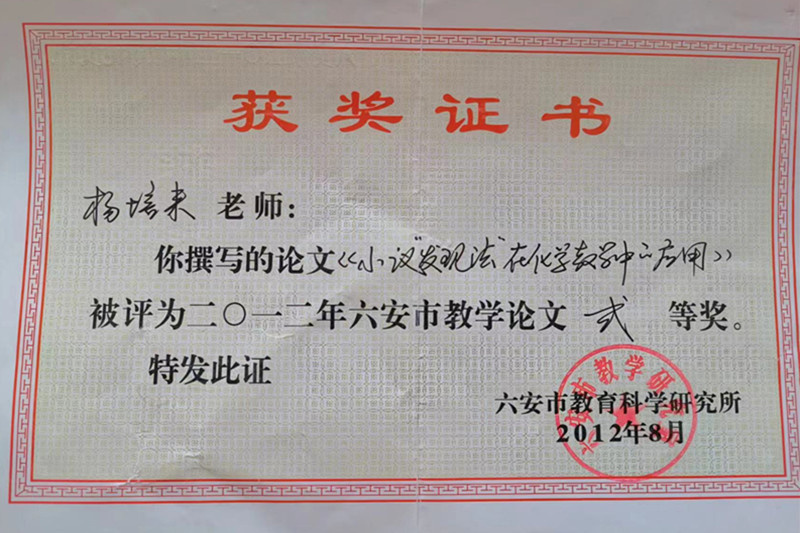 获奖证书
杨培来 老师：
你撰写的论文《小议“发现法”在化学教学中的应用》
被评为二〇一二年六安市教学论文 弍 等奖。
特发此证
六安市教育科学研究所
2012年8月